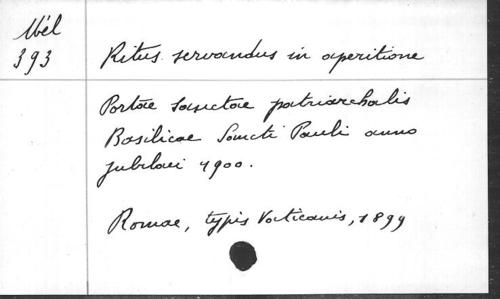 Mél
393
Ritus servandus in aperitione
Portae sanctae patriarchalis
Basilicae Sancti Pauli anno
jubilaei 1900.
Romae, typis Vaticanis, 1899